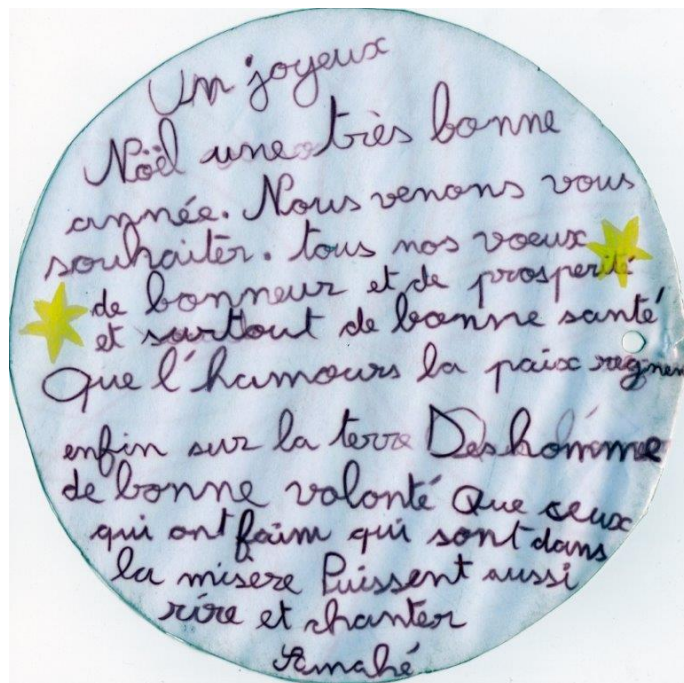 Un joyeux
Noël une très bonne
année. Nous venons vous
souhaiter. tous nos voeux
de bonneur et de prosperité
et surtout de bonne santé
Que l'hamours la paix regnent
enfin sur la terre Des homme
de bonne volonté Que ceux
qui ont faim qui sont dans
la misere Puissent aussi
rire et chanter